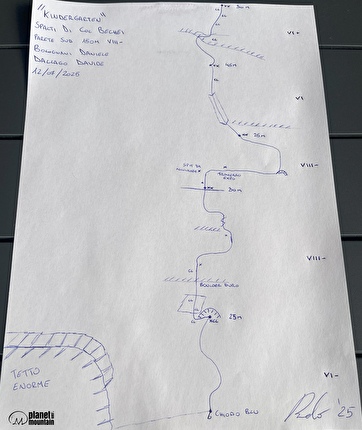 "KINDERGARTEN"
SPALTI DI COL BECHEI
PARETE SUD 150M VIII-
BOLOGNANI DANIELE
DALLAGO DAVIDE
12/07/2025
30 M
VI+
45M
VI
25 M
VIII-
30M
VIII-
BOULDER DURO
25M
TETTO
ENORME
VI-
CHIODO BLU
'25
planet mountain